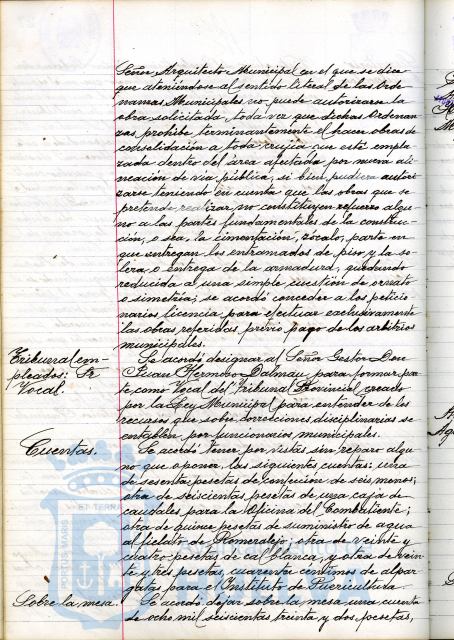 Señor Arquitecto Municipal en el que se dice
que ateniéndose al sentido literal de las Orde
nanzas Municipales no puede autorizarse la
obra solicitada, toda vez que dichas Ordenan
zas prohibe terminantemente el hacer obras de
consolidación a toda crujia que esté empla
zada dentro del área afectada por nueva ali
neación de via pública, si bien pudiera autori
zarse teniendo en cuenta que las obras que se
pretende realizar, no constituyen refuerzo algu
no a las partes fundamentales de la construc
ción, o sea, la cimentación, zócalo, parte en
que entregan los entramados de piso y la so
lera o entrega de la armadura, quedando
reducida a una simple cuestión de ornato
o simetria; se acordó conceder a los peticio
narios licencia para efectuar exclusivamente
las obras referidas previo pago de los arbitrios
municipales.
Tribunal em-
pleados: Sr.
Vocal.
Se acordó designar al Señor Gestor Don
Juan Hermoso Dalmau, para formar par
te como Vocal del Tribunal Provincial creado
por la Ley Municipal para entender de los
recursos que sobre correcciones disciplinarias se
entablen por funcionarios municipales.
Cuentas.
Se acordó tener por vistas sin reparo algu
no que oponer, las siguientes cuentas: una
de sesenta pesetas de confección de seis monos;
otra de seiscientas pesetas de una caja de
caudales para la Oficina del Combatiente;
otra de quince pesetas de suministro de agua
al fielato de Romeralejo; otra de veinte y
cuatro pesetas de cal blanca, y otra de vein
te y tres pesetas, cuarenta céntimos de alpar
gatas para el Instituto de Puericultura.
Sobre la mesa.
Se acordó dejar sobre la mesa una cuenta
de ocho mil seiscientas treinta y dos pesetas,
ET TERRA
PORTUS MARIS